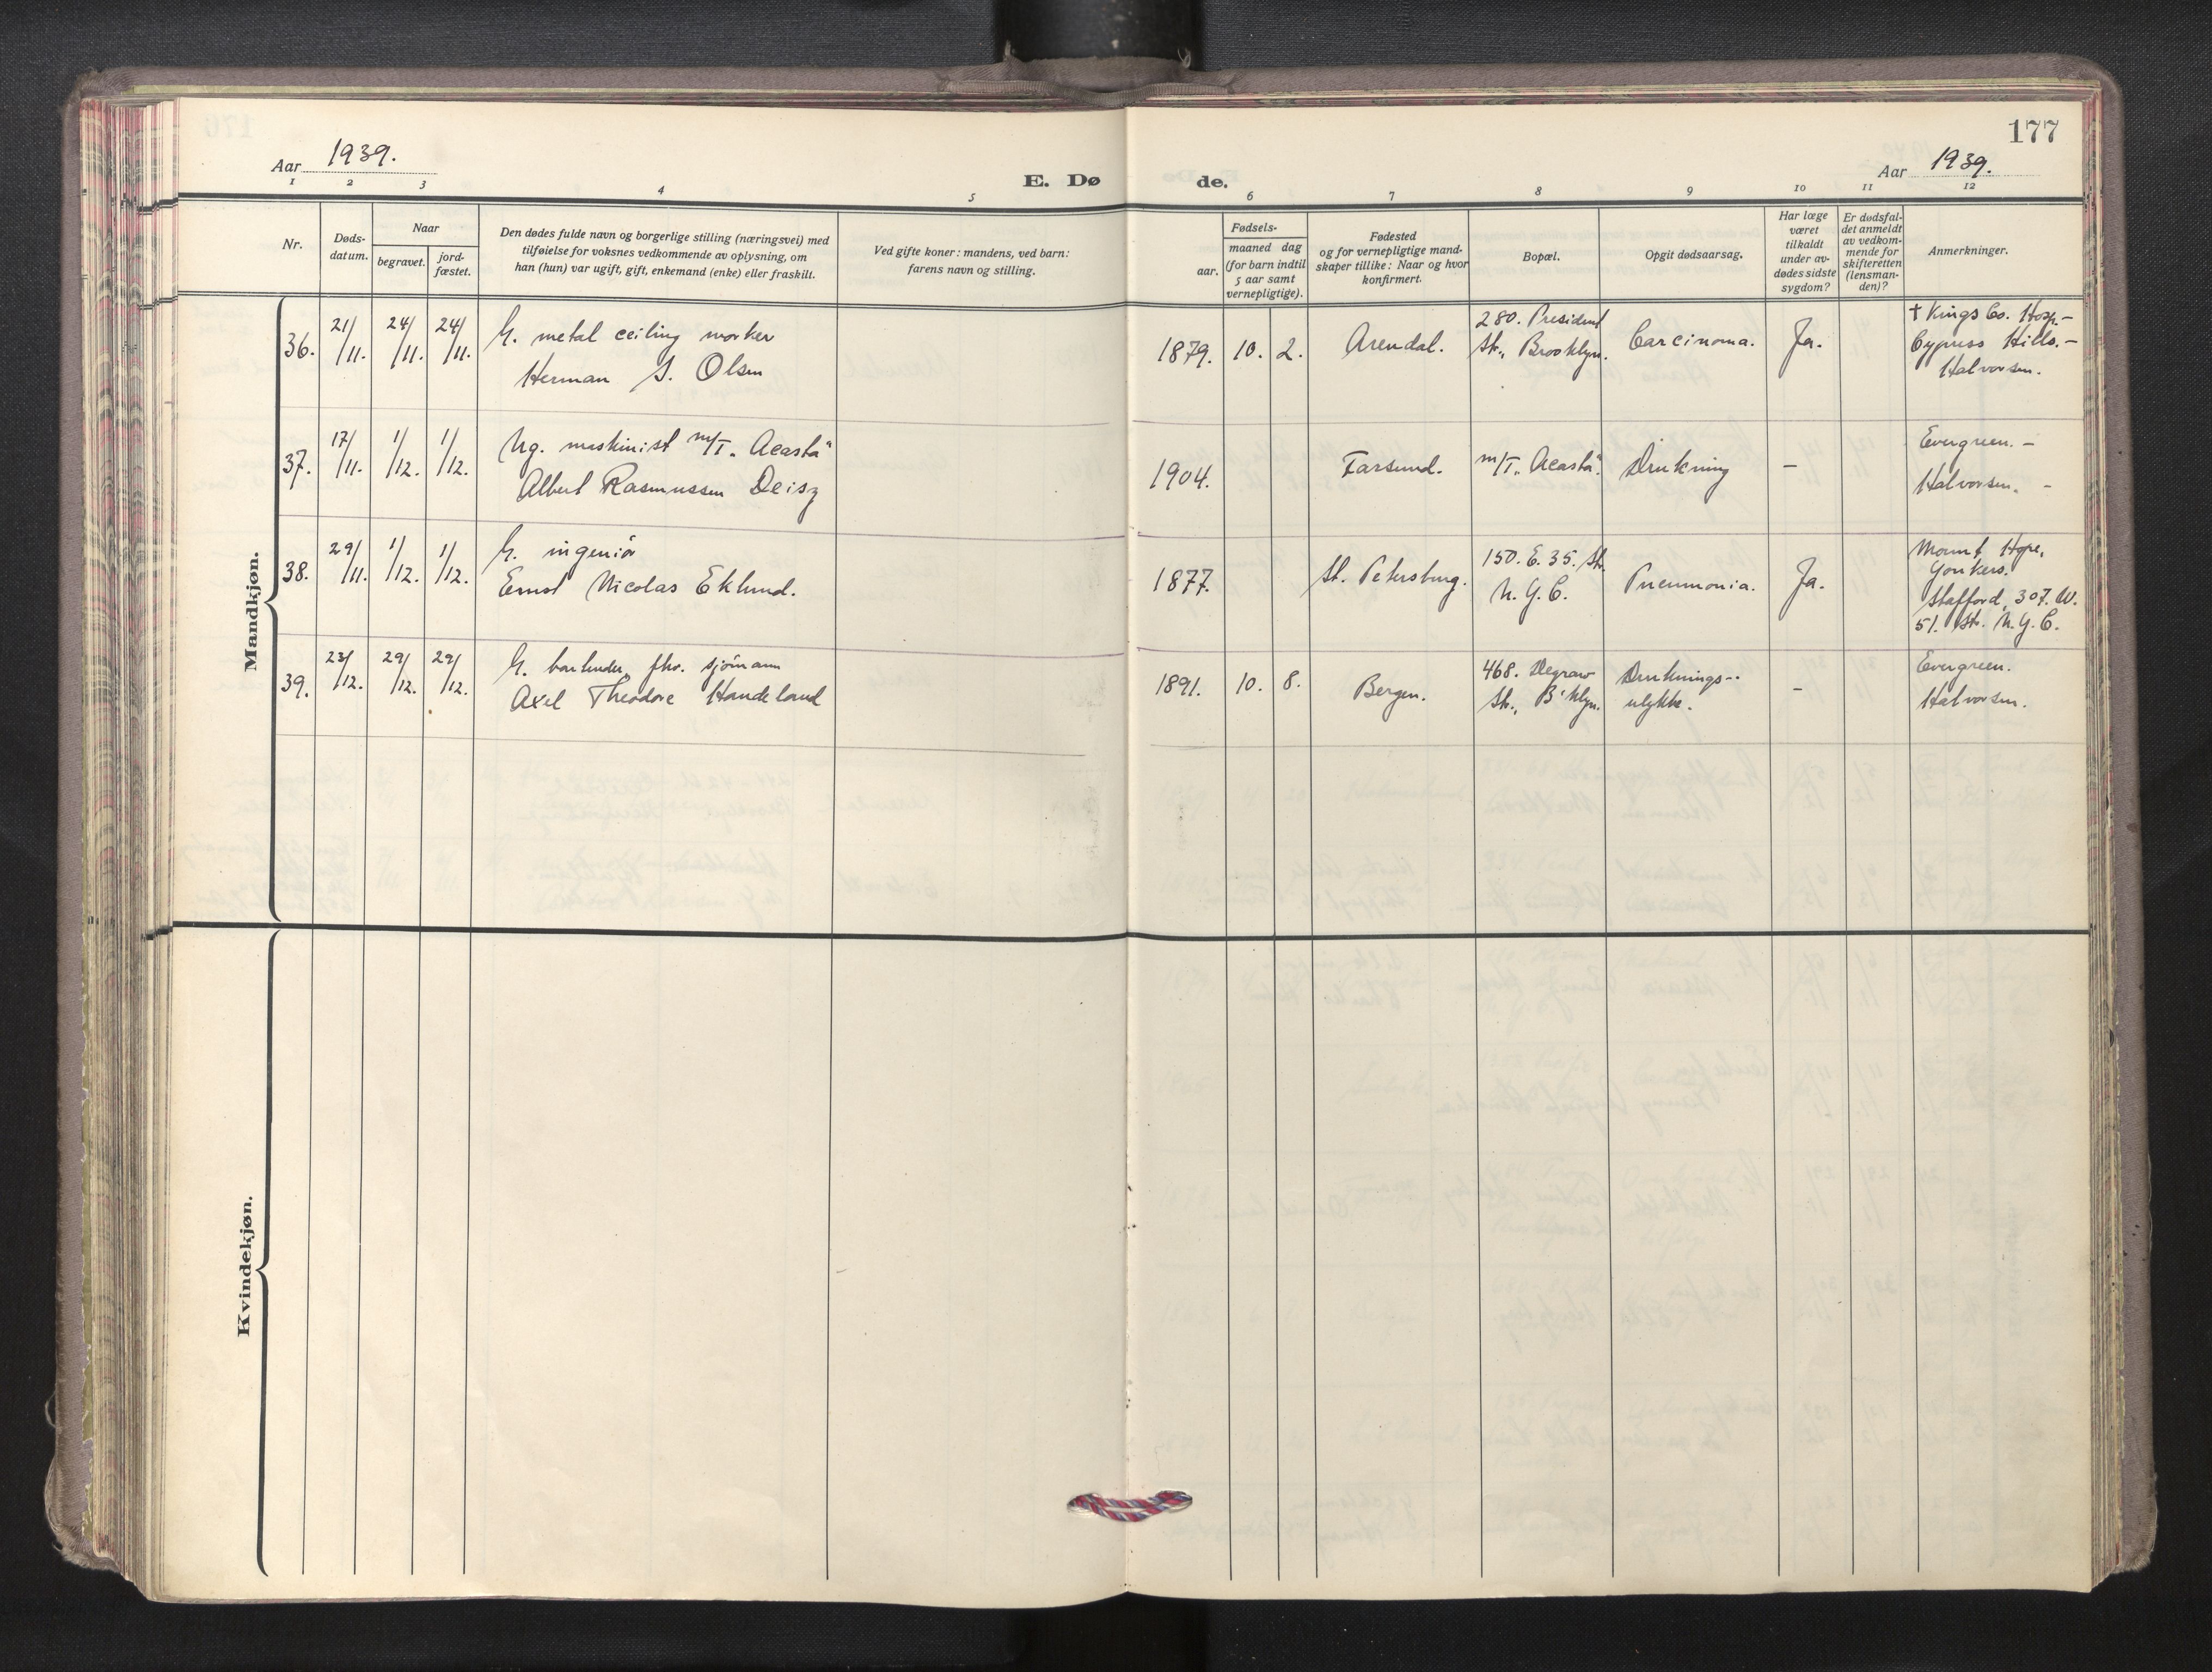 177
Aar 1939.
E. Dø de.
Aar 1939.
1 2 3 4 5 6 7 8 9 10 11 12
Nr.
Døds-
datum.
Naar
begravet.
jord-
fæstet.
Den dødes fulde navn og borgerlige stilling (næringsvei) med
tilføielse for voksnes vedkommende av oplysning, om
han (hun) var ugift, gift, enkemand (enke) eller fraskilt.
Ved gifte koner: mandens, ved barn:
farens navn og stilling.
Fødsels-
aar.
maaned dag
(for barn indtil
5 aar samt
vernepligtige).
Fødested
og for vernepligtige mand-
skaper tillike: Naar og hvor
konfirmert.
Bopæl.
Opgit dødsaarsag.
Har læge
været
tilkaldt
under av-
dødes sidste
sygdom?
Er dødsfal-
det anmeldt
av vedkom-
mende for
skifteretten
(lensman-
den)?
Anmerkninger.
Mandkjøn.
36.
21/11.
24/11.
24/11.
G. metal ceiling worker
Herman S. Olsen
1879.
10.
2.
Arendal.
280. President
Str., Brooklyn.
Carcinoma.
Ja.
† Kings Co. Hosp.-
Cypress Hills.-
Halvorsen.
37.
17/11.
1/12.
1/12.
Ug. maskinist m/T. "Acasta"
Albert Rasmussen Deisz
1904.
Farsund.
m/T. "Acasta".
Drukning
-
Evergreen. -
Halvorsen. -
38.
29/11.
1/12.
1/12.
G. ingeniør
Ernst Nicolas Eklund.
1877.
St. Petersburg.
150. E. 35. Str.
N. Y. C.
Pneumonia.
Ja.
Mount Hope,
Yonkers.
Stafford, 307. W.
51. Str. N. Y. C.
39.
23/12.
29/12.
29/12.
G. bartender, fhv. sjömann
Axel Theodore Handeland
1891.
10.
8.
Bergen.
468. Degraw
Str., B'klyn.
Druknings-
ulykke.
-
Evergreen.
Halvorsen.
Kvindekjøn.